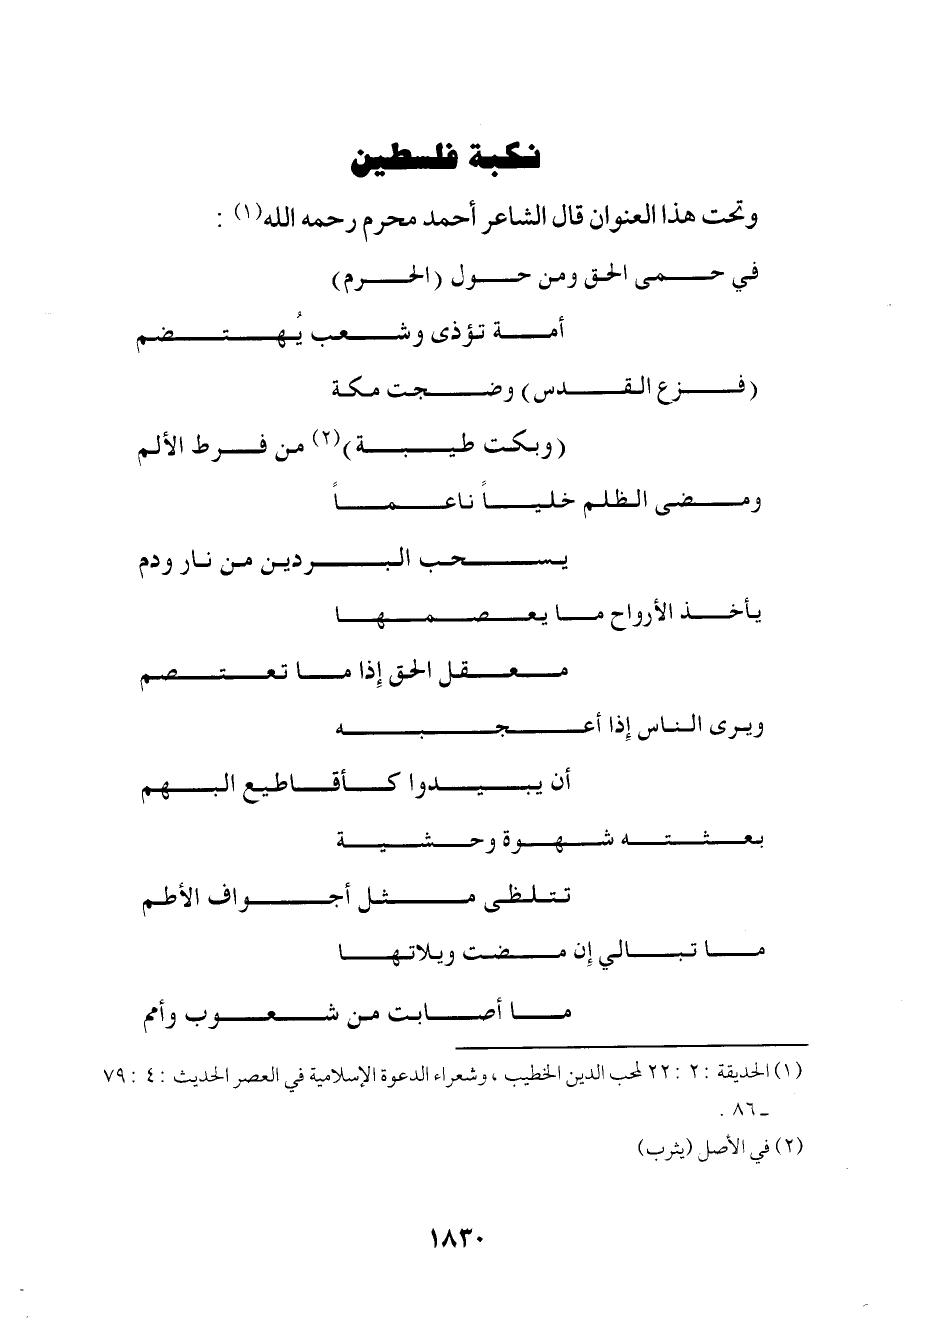 نكبة فلسطين
وتحت هذا العنوان قال الشاعر أحمد محرم رحمه الله(١) :
في حمى الحق ومن حول (الحرم)
أمة تؤذى وشعب يُهتضم
(فزع القدس) وضجت مكة
(وبكت طيبة)(٢) من فرط الألم
ومضى الظلم خلياً ناعماً
يسحب البردين من نار ودم
يأخذ الأرواح ما يعصمها
معقل الحق إذا ما تعتصم
ويرى الناس إذا أعجبه
أن يبيدوا كأقاطيع البهم
بعثته شهوة وحشية
تتلظى مثل أجواف الأطم
ما تبالي إن مضت ويلاتها
ما أصابت من شعوب وأمم
(١) الحديقة : ٢ : ٢٢ لمحب الدين الخطيب ، وشعراء الدعوة الإسلامية في العصر الحديث : ٤ : ٧٩
ـ ٨٦ .
(٢) في الأصل (يثرب)
١٨٣٠